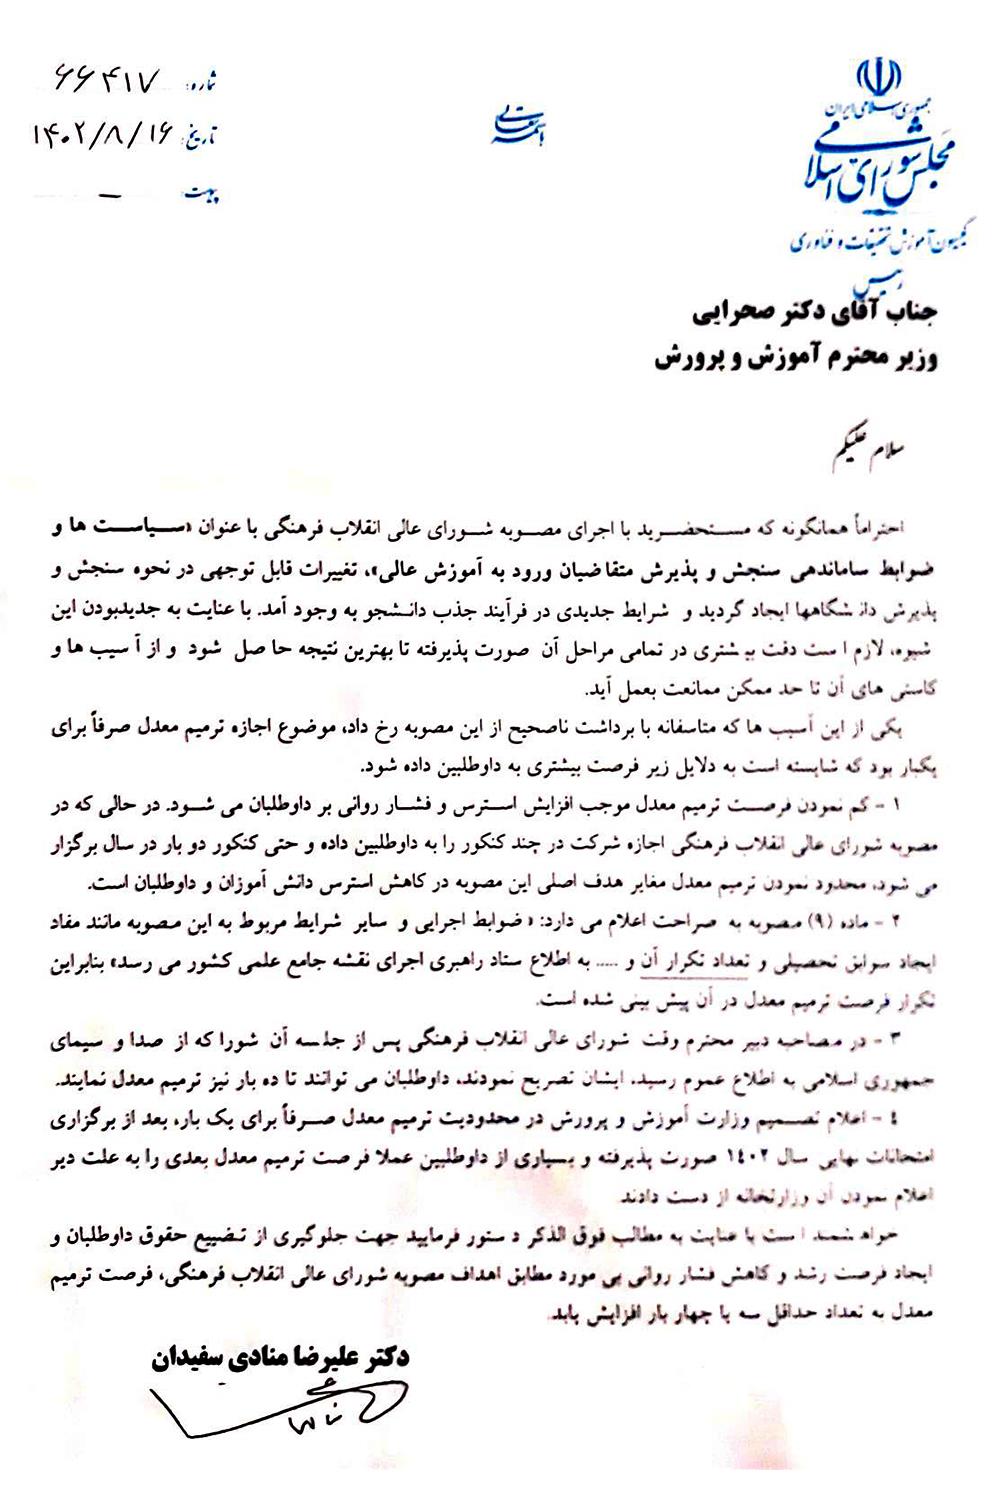 شماره: ۶۶۴۱۷
تاریخ: ۱۴۰۲/۸/۱۶
پیوست: –
باسمه تعالی
جمهوری اسلامی ایران
مجلس شورای اسلامی
کمیسیون آموزش تحقیقات و فناوری
رئیس
جناب آقای دکتر صحرایی
وزیر محترم آموزش و پرورش
سلام علیکم
احتراماً همانگونه که مستحضرید با اجرای مصوبه شورای عالی انقلاب فرهنگی با عنوان «سیاست ها و
ضوابط ساماندهی سنجش و پذیرش متقاضیان ورود به آموزش عالی»، تغییرات قابل توجهی در نحوه سنجش و
پذیرش دانشگاهها ایجاد گردید و شرایط جدیدی در فرآیند جذب دانشجو به وجود آمد. با عنایت به جدیدبودن این
شیوه، لازم است دقت بیشتری در تمامی مراحل آن صورت پذیرفته تا بهترین نتیجه حاصل شود و از آسیب ها و
کاستی های آن تا حد ممکن ممانعت بعمل آید.
یکی از این آسیب ها که متاسفانه با برداشت ناصحیح از این مصوبه رخ داد، موضوع اجازه ترمیم معدل صرفاً برای
یکبار بود که شایسته است به دلایل زیر فرصت بیشتری به داوطلبین داده شود.
۱ - کم نمودن فرصت ترمیم معدل موجب افزایش استرس و فشار روانی بر داوطلبان می شود. در حالی که در
مصوبه شورای عالی انقلاب فرهنگی اجازه شرکت در چند کنکور را به داوطلبین داده و حتی کنکور دو بار در سال برگزار
می شود، محدود نمودن ترمیم معدل مغایر هدف اصلی این مصوبه در کاهش استرس دانش آموزان و داوطلبان است.
۲ - ماده (۹) مصوبه به صراحت اعلام می دارد: «ضوابط اجرایی و سایر شرایط مربوط به این مصوبه مانند مفاد
ایجاد سوابق تحصیلی و تعداد تکرار آن و ..... به اطلاع ستاد راهبری اجرای نقشه جامع علمی کشور می رسد» بنابراین
تکرار فرصت ترمیم معدل در آن پیش بینی شده است.
۳ - در مصاحبه دبیر محترم وقت شورای عالی انقلاب فرهنگی پس از جلسه آن شورا که از صدا و سیمای
جمهوری اسلامی به اطلاع عموم رسید، ایشان تصریح نمودند، داوطلبان می توانند تا ده بار نیز ترمیم معدل نمایند.
۴ - اعلام تصمیم وزارت آموزش و پرورش در محدودیت ترمیم معدل صرفاً برای یک بار، بعد از برگزاری
امتحانات نهایی سال ۱۴۰۲ صورت پذیرفته و بسیاری از داوطلبین عملا فرصت ترمیم معدل بعدی را به علت دیر
اعلام نمودن آن وزارتخانه از دست دادند
خواهشمند است با عنایت به مطالب فوق الذکر دستور فرمایید جهت جلوگیری از تضییع حقوق داوطلبان و
ایجاد فرصت رشد و کاهش فشار روانی بی مورد مطابق اهداف مصوبه شورای عالی انقلاب فرهنگی، فرصت ترمیم
معدل به تعداد حداقل سه یا چهار بار افزایش یابد.
دکتر علیرضا منادی سفیدان